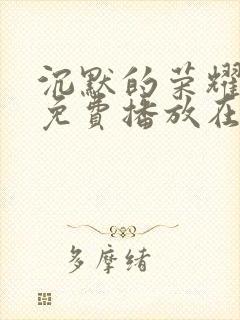 沉默的荣耀
免費播放在
多摩绪